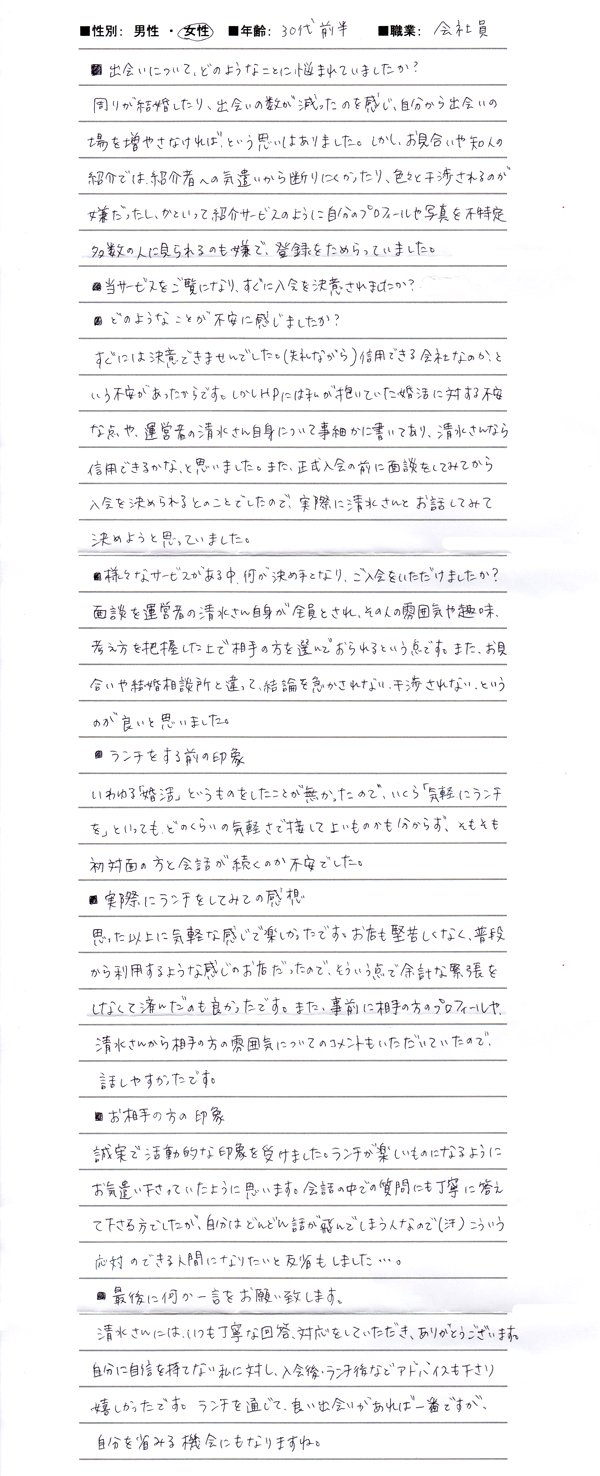 ■性別: 男性 ・ 女性 ■年齢: 30代前半 ■職業: 会社員
■ 出会いについて、どのようなことに悩まれていましたか?
周りが結婚したり、出会いの数が減ったのを感じ、自分から出会いの
場を増やさなければ、という思いはありました。しかし、お見合いや知人の
紹介では、紹介者への気遣いから断りにくかったり、色々と干渉されるのが
嫌だったし、かといって紹介サービスのように自分のプロフィールや写真を不特定
多数の人に見られるのも嫌で、登録をためらっていました。
■当サービスをご覧になり、すぐに入会を決意されましたか?
■ どのようなことが不安に感じましたか?
すぐには決意できませんでした。(失礼ながら)信用できる会社なのか、と
いう不安があったからです。しかしHPには私が抱いていた婚活に対する不安
な点や、運営者の清水さん自身について事細かに書いてあり、清水さんなら
信用できるかな、と思いました。また、正式入会の前に面談をしてみてから
入会を決められるとのことでしたので、実際に清水さんと お話してみて
決めようと思っていました。
■様々なサービスがある中、何が決め手となり、ご入会をいただけましたか?
面談を運営者の清水さん自身が全員とされ、その人の雰囲気や趣味、
考え方を把握した上で相手の方を選んでおられるという点です。また、お見
合いや結婚相談所と違って、結論を急かされない、干渉されない、という
のが良いと思いました。
■ ランチをする前の印象
いわゆる「婚活」というものをしたことが無かったので、いくら「気軽にランチ
を」といっても、どのくらいの気軽さで接して よいものかも分からず、そもそも
初対面の方と会話が続くのか不安でした。
■ 実際にランチをしてみての感想
思った以上に気軽な感じで楽しかったです。お店も堅苦しくなく、普段
から利用するような感じのお店だったので、そういう点で余計な緊張を
しなくて済んだのも良かったです。また、事前に相手の方のプロフィールや、
清水さんから相手の方の雰囲気についてのコメントもいただいていたので、
話しやすかったです。
■ お相手の方の 印象
誠実で活動的な印象を受けました。ランチが楽しいものになるように
お気遣い下さっていたように思います。会話の中での質問にも丁寧に答え
て下さる方でしたが、自分はどんどん話が飛んでしまう人なので(汗)こういう
応対 のできる人間になりたいと反省もしました…。
■ 最後に何か一言をお願い致します。
清水さんには、いつも丁寧な回答、対応をしていただき、ありがとうございます。
自分に自信を持てない私に対し、入会後・ランチ後など アドバイスも下さり
嬉しかったです。ランチを通じて、良い出会いがあれば一番ですが、
自分を省みる機会にもなりますね。